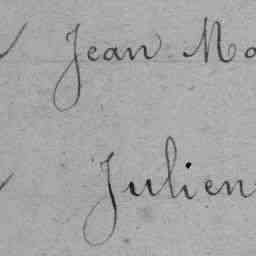 Jean Ma
Julien